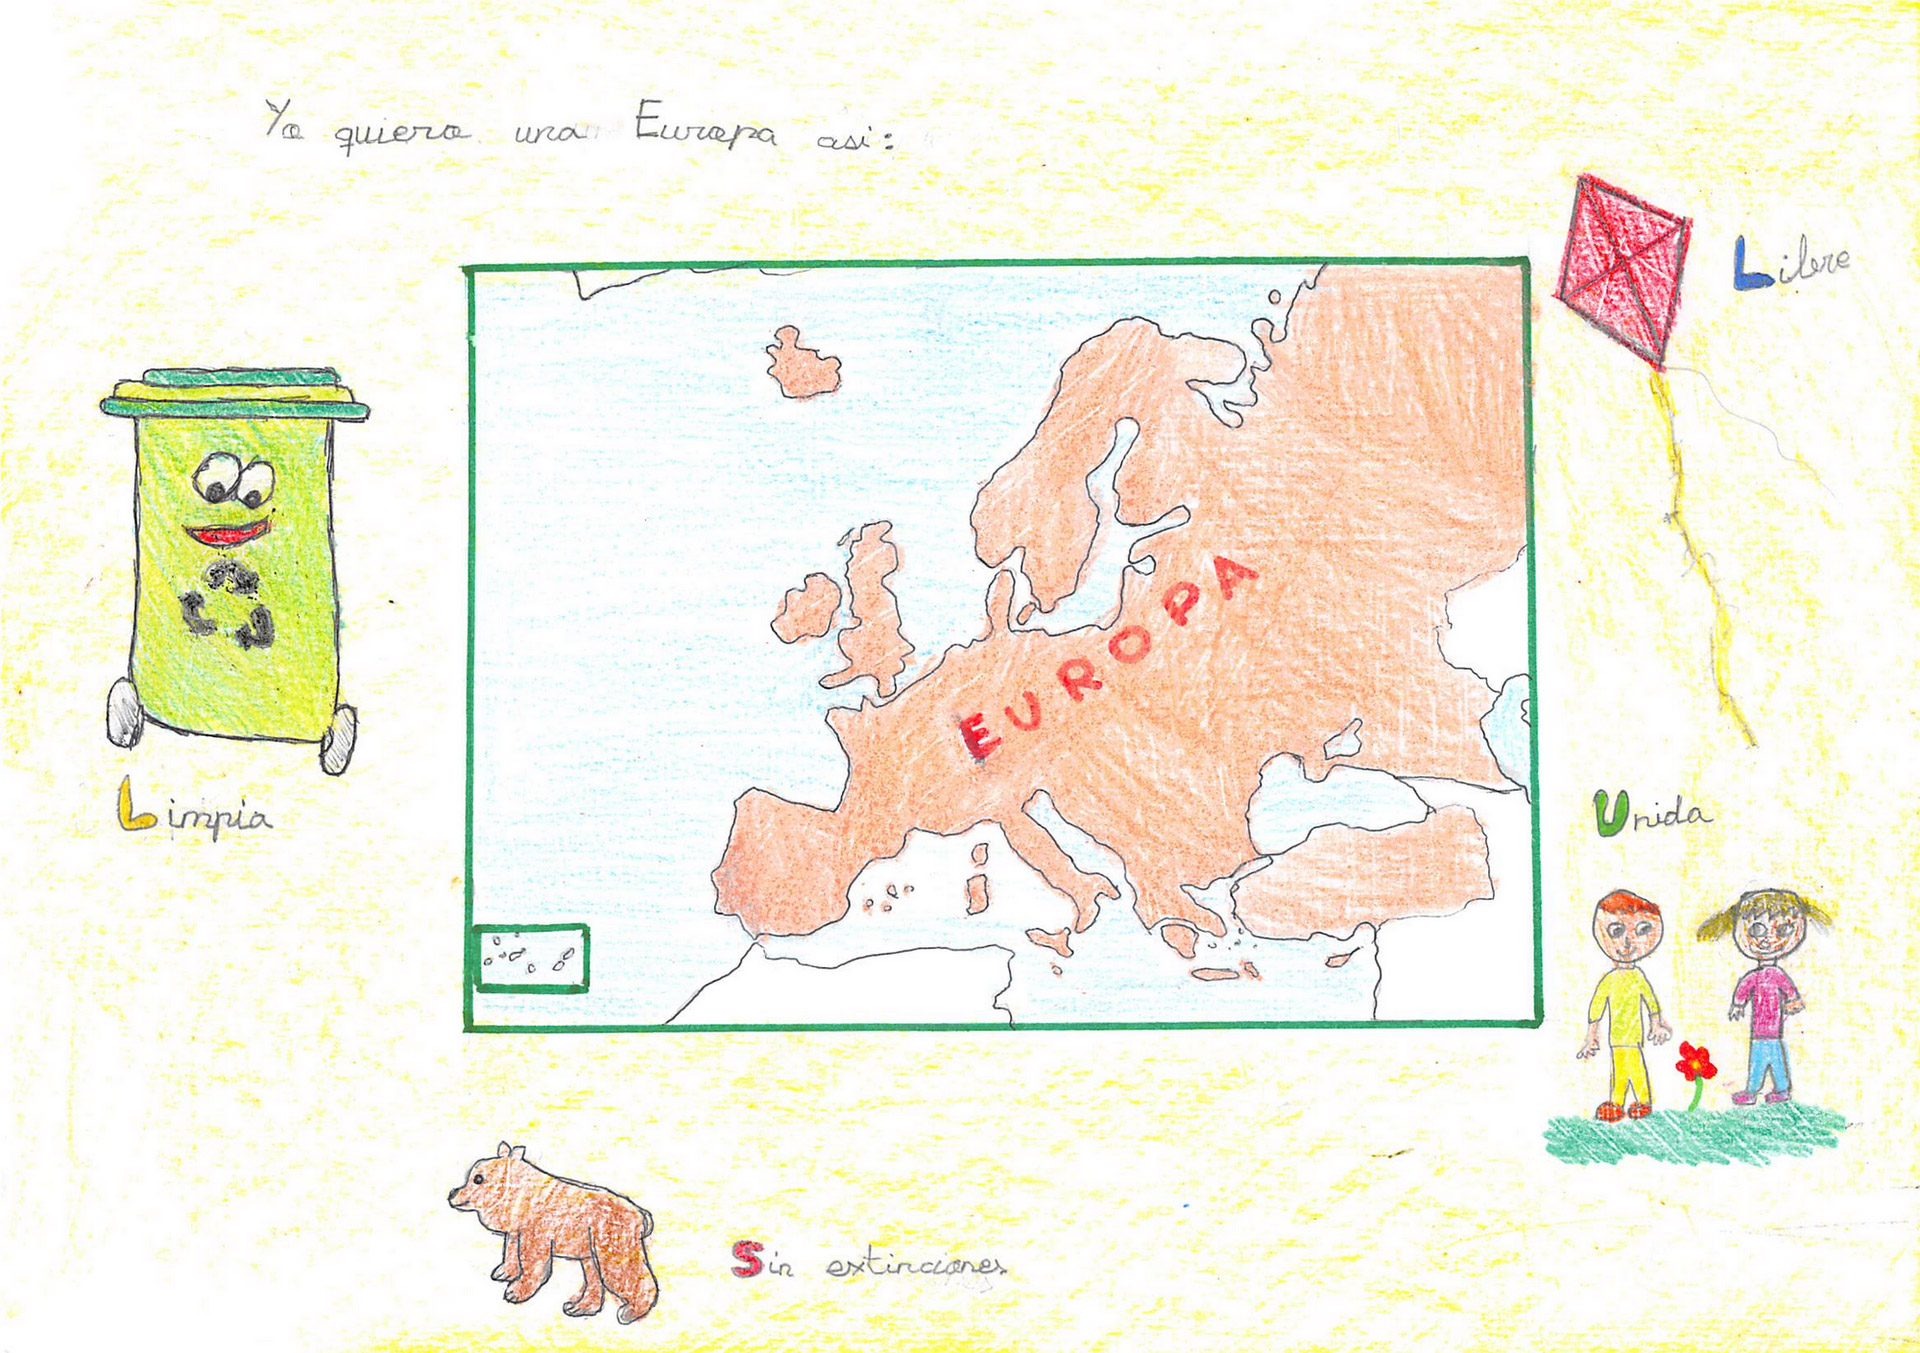 Yo quiero una Europa asi:
Libre
EUROPA
Limpia
Unida
Sin extinciones